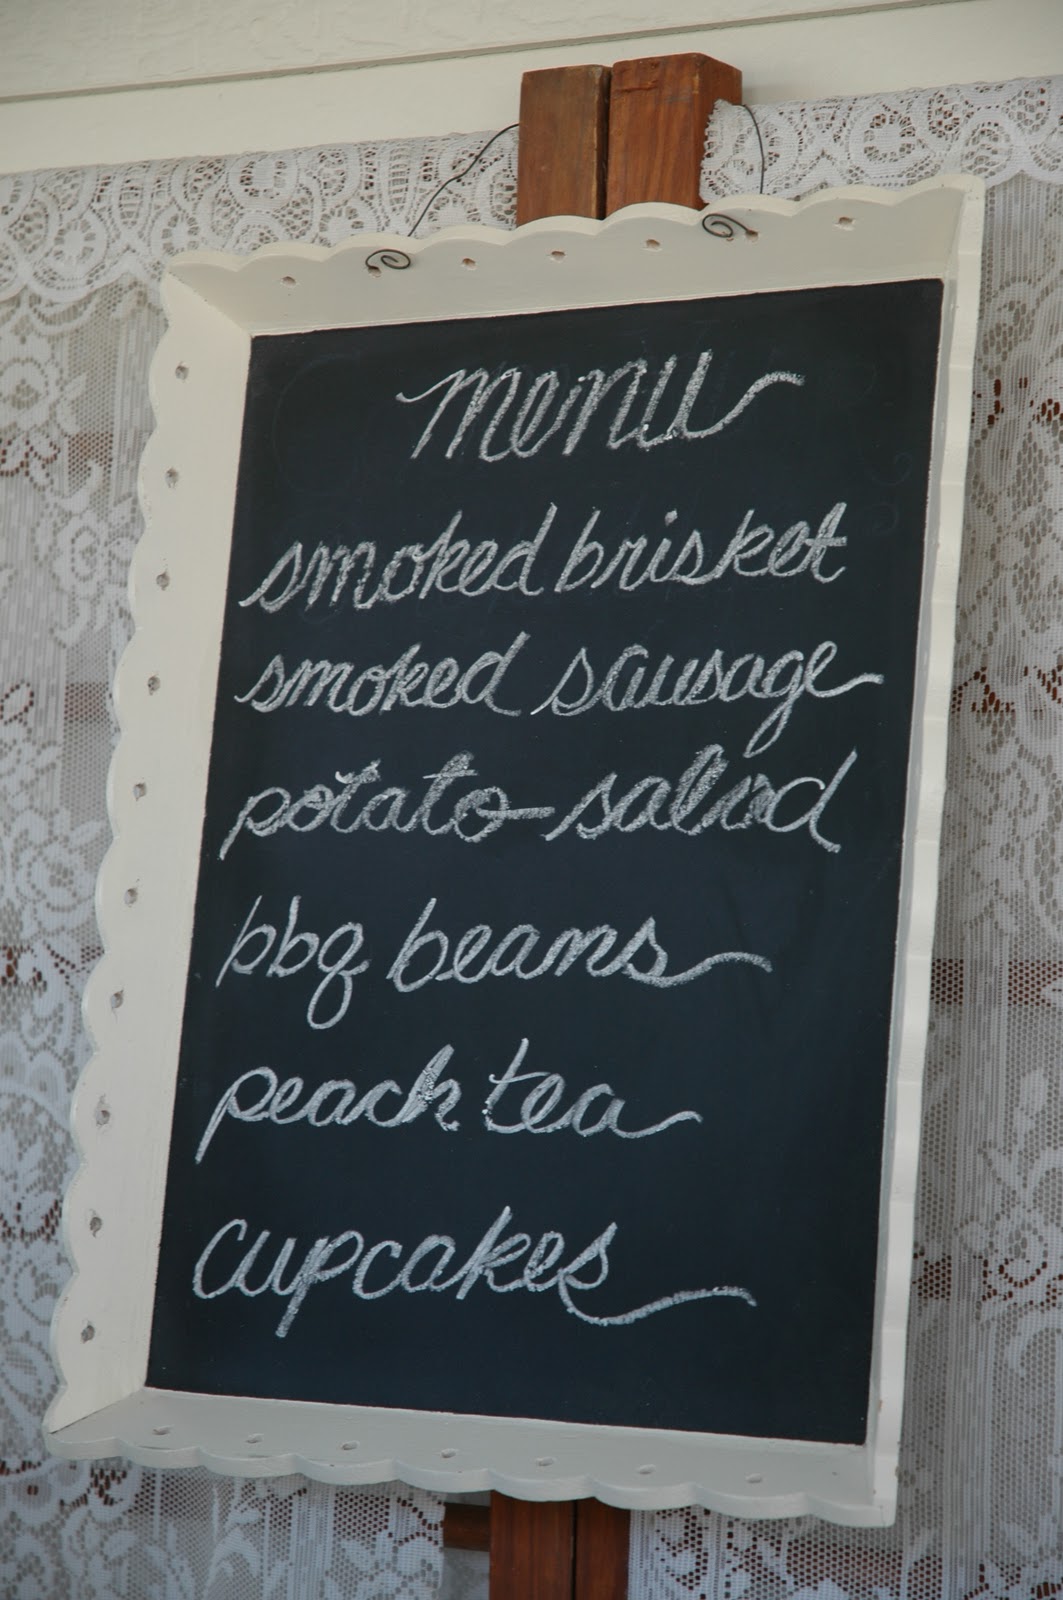 menu
smoked brisket
smoked sausage
potato salad
bbq beans
peach tea
cupcakes